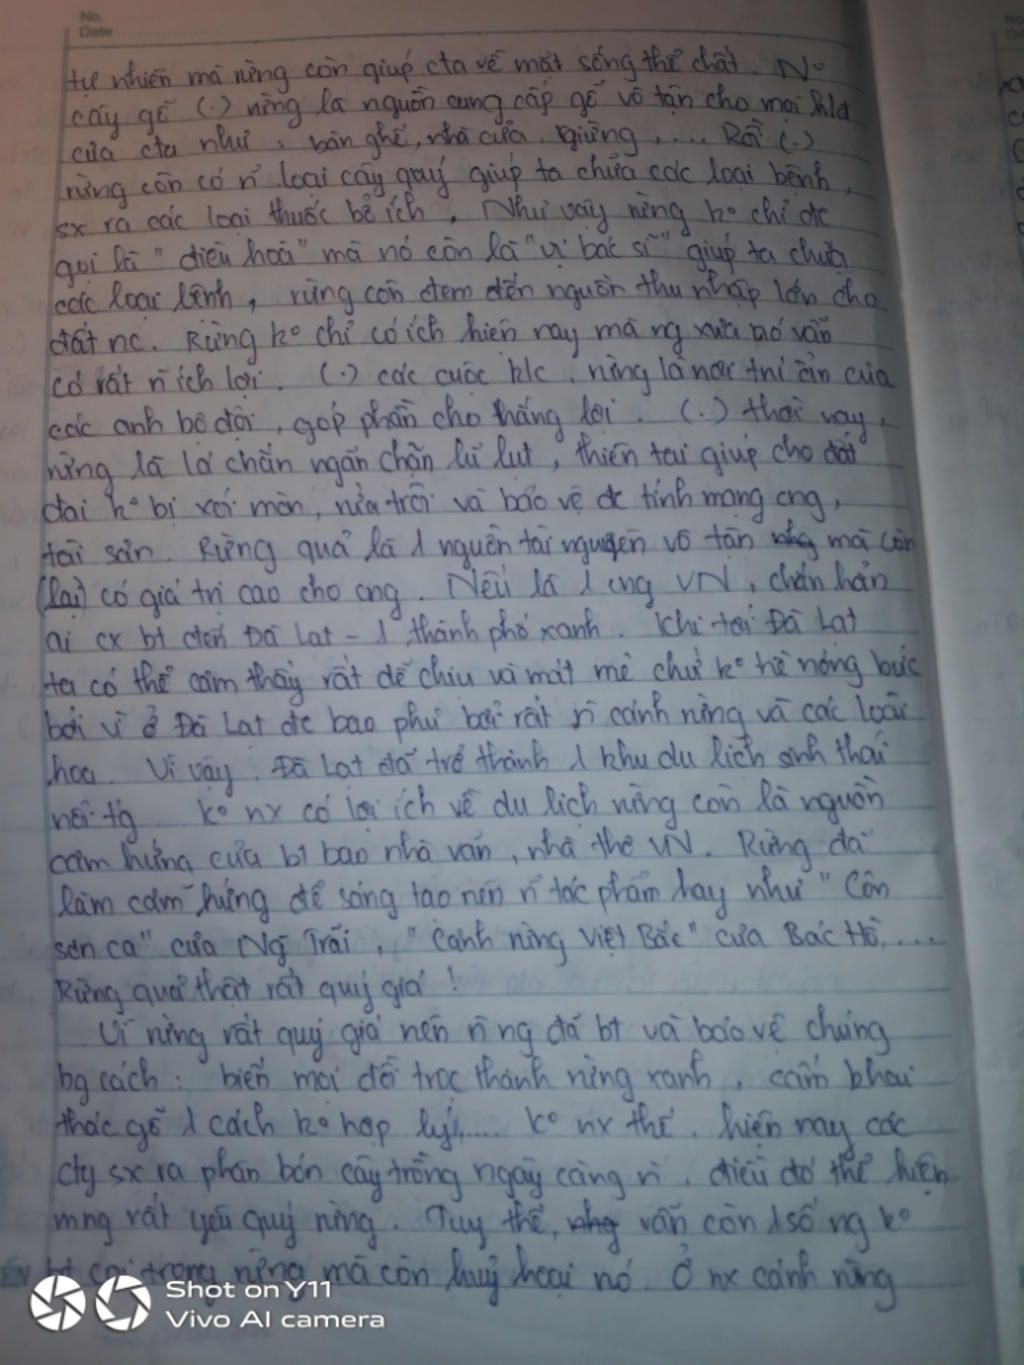 No.
Date
tự nhiên mà rừng còn giúp cta về mặt sống thể chất. Nº
cây gỗ (.) rừng là nguồn cung cấp gỗ vô tận cho mọi
của cta như: bàn ghế, nhà cửa, giường,.... Rồi (.)
rừng còn có n̄ loại cây quý giúp ta chữa các loại bệnh,
sx ra các loại thuốc bổ ích, Như vậy rừng kº chỉ đc
gọi là "điều hoà" mà nó còn là "vị bác sĩ" giúp ta chữa
các loại bệnh, rừng còn đem đến nguồn thu nhập lớn cho
đất nc. Rừng kº chỉ có ích hiện nay mà ng xưa nó vẫn
có rất n̄ ích lợi. (.) các cuộc k/c, rừng là nơi trú ẩn của
các anh bộ đội, góp phần cho thắng lợi. (.) thời nay,
rừng là lá chắn ngăn chặn lũ lụt, thiên tai giúp cho đất
đai kº bị xói mòn, rửa trôi và bảo vệ đc tính mạng cng,
tài sản. Rừng quả là 1 nguồn tài nguyên vô tận mà còn
(lại) có giá trị cao cho cng. Nếu là 1 cng VN, chắn hẳn
ai cx bt đến Đà Lạt - 1 thành phố xanh. Khi tới Đà Lạt
ta có thể cảm thấy rất dễ chịu và mát mẻ chứ kº hề nóng bức
bởi vì ở Đà Lạt đc bao phủ bởi rất n̄ cánh rừng và các loài
hoa. Vì vậy, Đà Lạt đã trở thành 1 khu du lịch sinh thái
nổi tg. kº nx có lợi ích về du lịch rừng còn là nguồn
cảm hứng của bt bao nhà văn, nhà thơ VN. Rừng đã
làm cảm hứng để sáng tạo nên n̄ tác phẩm hay như "Côn
sơn ca" của Ng̃ Trãi, "Cảnh rừng Việt Bắc" của Bác Hồ,....
Rừng quả thật rất quý giá!
Vì rừng rất quý giá nên n̄ ng đã bt và bảo vệ chúng
bg cách: biến mọi đồi trọc thành rừng xanh, cấm khai
thác gỗ 1 cách kº hợp lý,.... kº nx thế, hiện nay các
cty sx ra phân bón cây trồng ngày càng n̄, điều đó thể hiện
mng rất yêu quý rừng. Tuy thế, vẫn còn 1 số ng kº
bt coi trọng rừng mà còn huỷ hoại nó. Ở nx cánh rừng
Shot on Y11
Vivo AI camera